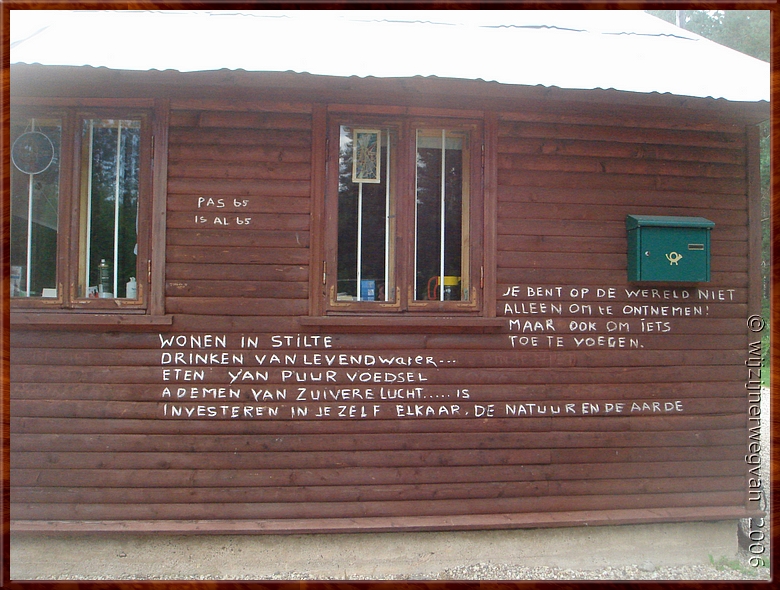 PAS 65
IS AL 65
JE BENT OP DE WERELD NIET
ALLEEN OM te ONTNEMEN!
MAAR OOK OM IETS
TOE TE VOEGEN.
WONEN IN STILTE
DRINKEN VAN LEVENDWateR...
ETEN VAN PUUR VOEDSEL
ADEMEN VAN ZUIVERE LUCHT..... IS
INVESTEREN IN JE ZELF ELKAAR, DE NATUUR EN DE AARDE
© wijzijnerwegvan 2006